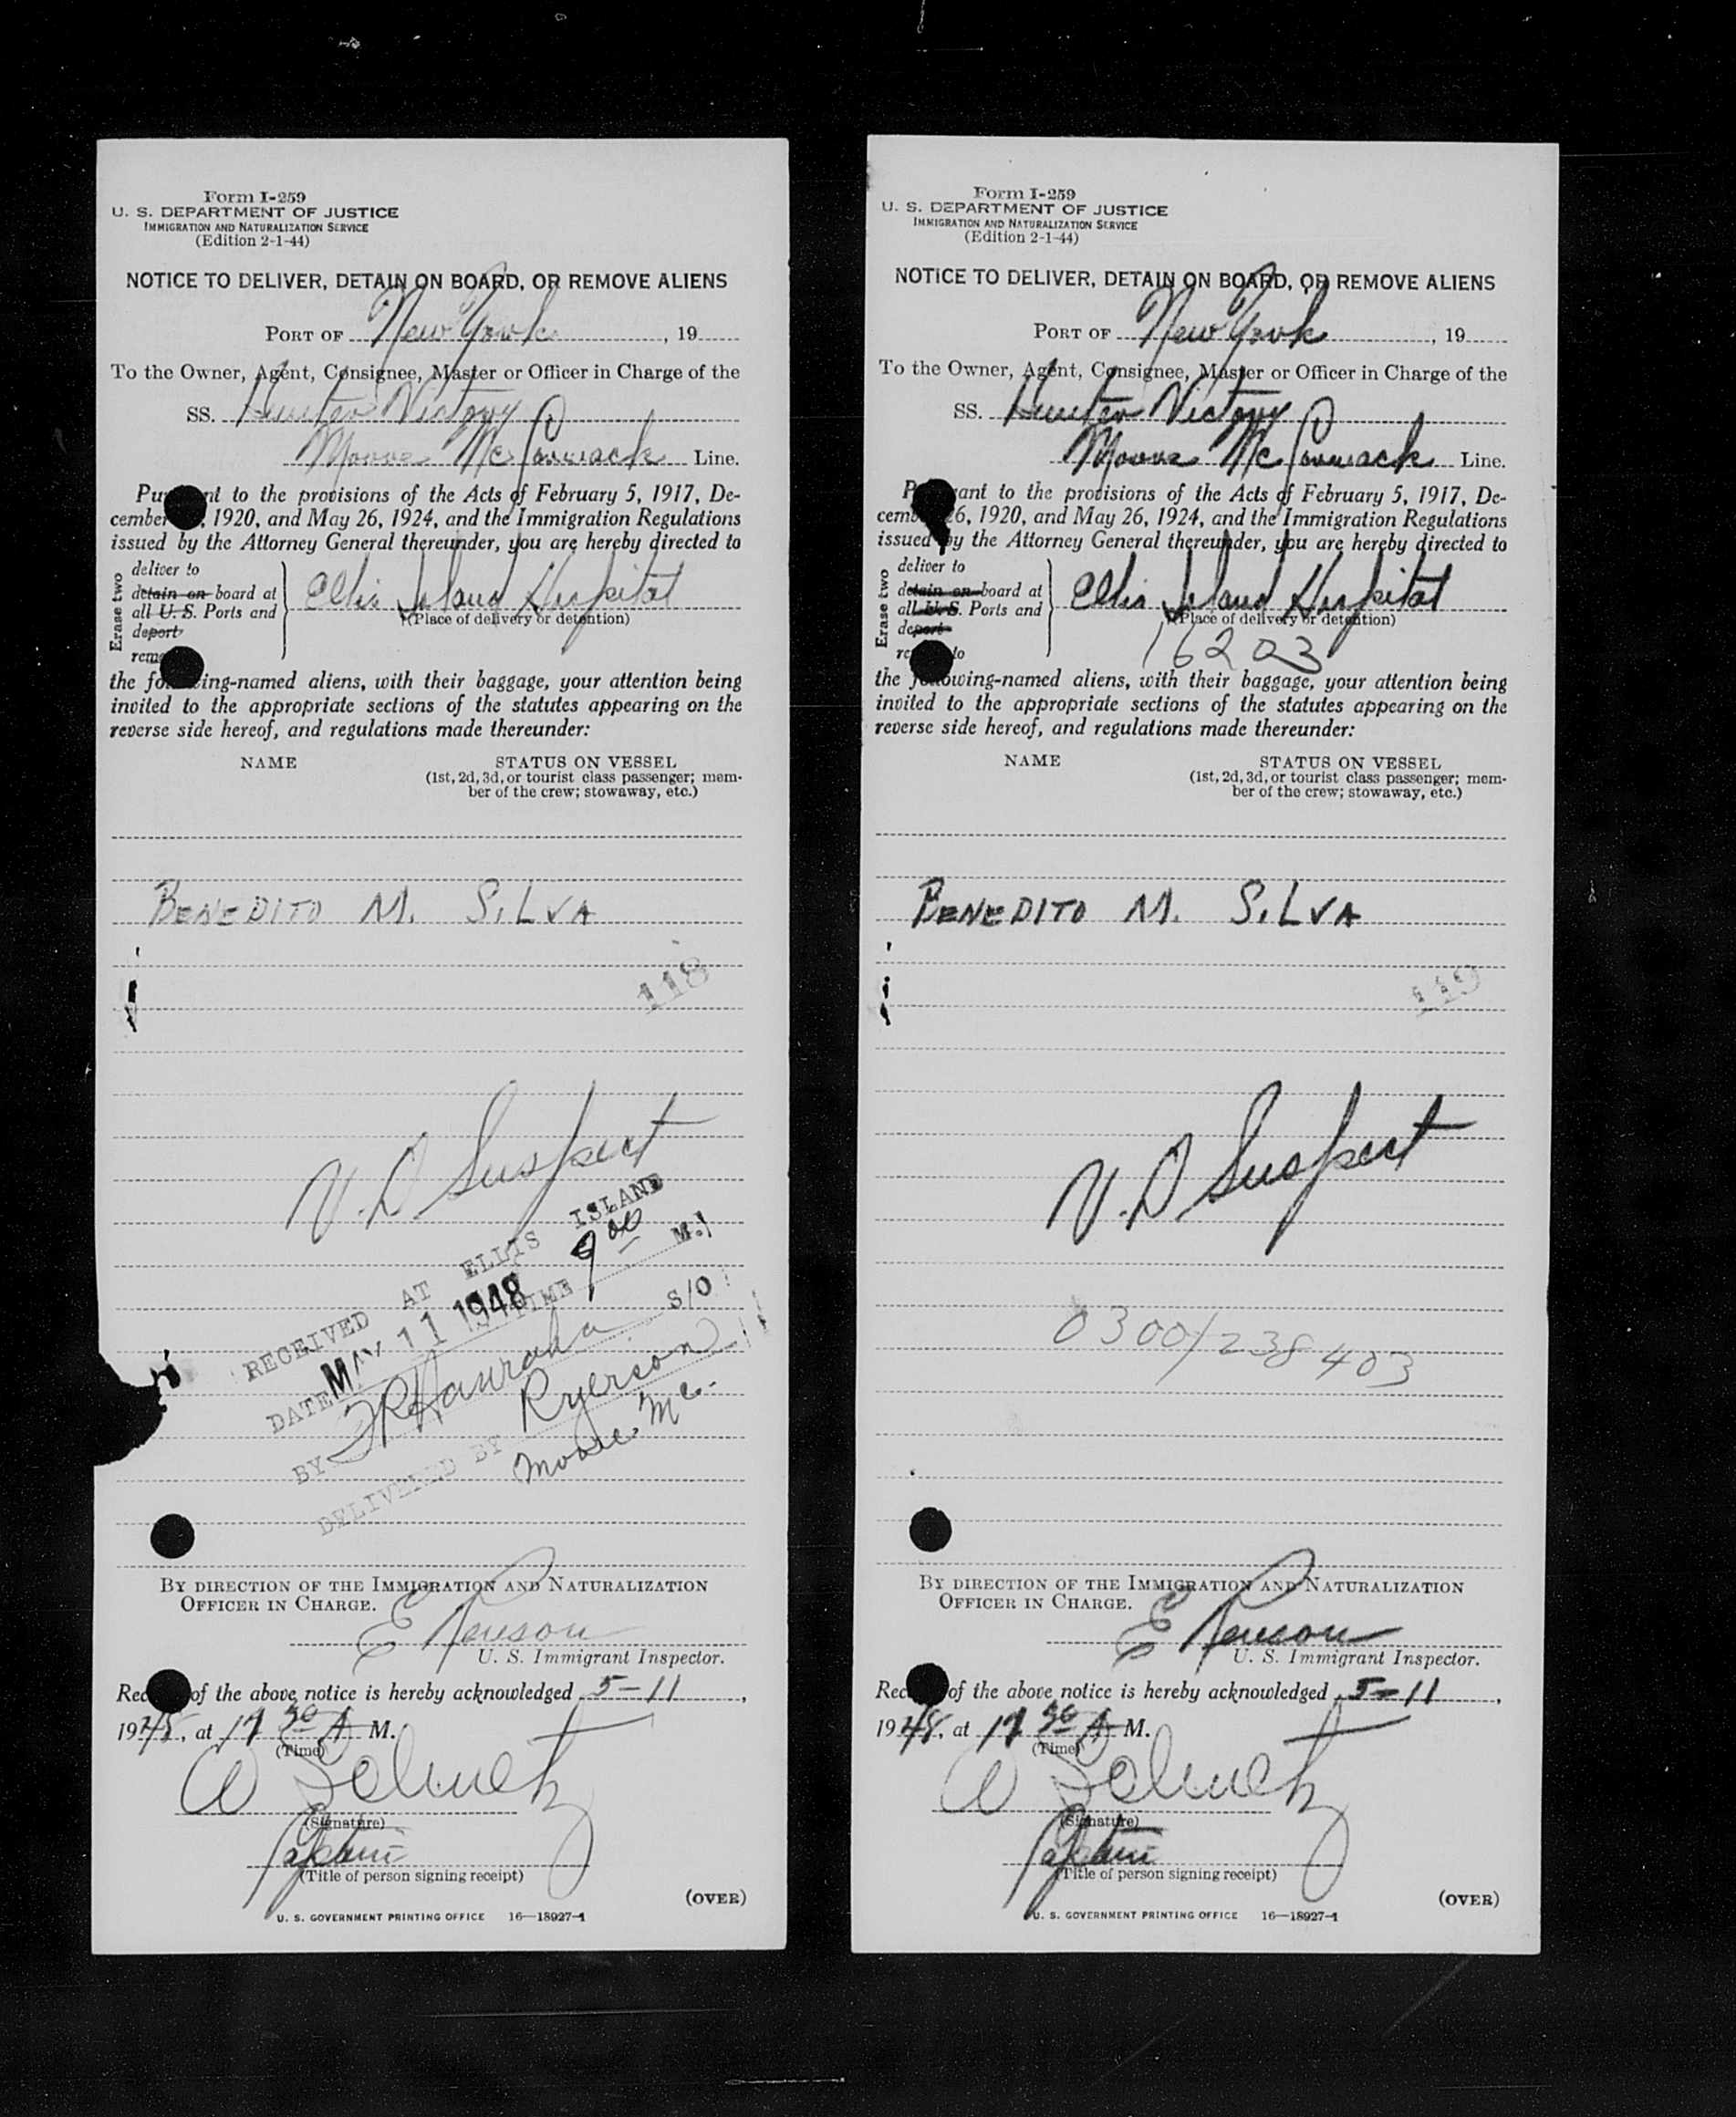 Form I-259
U. S. DEPARTMENT OF JUSTICE
IMMIGRATION AND NATURALIZATION SERVICE
(Edition 2-1-44)
NOTICE TO DELIVER, DETAIN ON BOARD, OR REMOVE ALIENS
PORT OF New York, 19
To the Owner, Agent, Consignee, Master or Officer in Charge of the
SS. Hunter Victory
Moore McCormack Line.
to the provisions of the Acts of February 5, 1917, De-
cember , 1920, and May 26, 1924, and the Immigration Regulations
issued by the Attorney General thereunder, you are hereby directed to
Erase two
deliver to
detain on board at
all U. S. Ports and
deport
Ellis Island Hospital
(Place of delivery or detention)
the -named aliens, with their baggage, your attention being
invited to the appropriate sections of the statutes appearing on the
reverse side hereof, and regulations made thereunder:
NAME STATUS ON VESSEL
(1st, 2d, 3d, or tourist class passenger; mem-
ber of the crew; stowaway, etc.)
BENEDITO M. SILVA
118
V.D Suspect
RECEIVED AT ELLIS ISLAND
DATE MAY 11 1948 TIME 9 00 M.
BY S/O
DELIVERED BY Ryerson
Moore Mc.
BY DIRECTION OF THE IMMIGRATION AND NATURALIZATION
OFFICER IN CHARGE.
E
U. S. Immigrant Inspector.
of the above notice is hereby acknowledged 5-11,
1948, at A M.
(Time)
(Signature)
Captain
(Title of person signing receipt)
(OVER)
U. S. GOVERNMENT PRINTING OFFICE 16—18927-1
Form I-259
U. S. DEPARTMENT OF JUSTICE
IMMIGRATION AND NATURALIZATION SERVICE
(Edition 2-1-44)
NOTICE TO DELIVER, DETAIN ON BOARD, OR REMOVE ALIENS
PORT OF New York, 19
To the Owner, Agent, Consignee, Master or Officer in Charge of the
SS. Hunter Victory
Moore McCormack Line.
to the provisions of the Acts of February 5, 1917, De-
26, 1920, and May 26, 1924, and the Immigration Regulations
issued by the Attorney General thereunder, you are hereby directed to
Erase two
deliver to
detain on board at
all U. S. Ports and
deport
to
Ellis Island Hospital
(Place of delivery or detention)
16203
the following-named aliens, with their baggage, your attention being
invited to the appropriate sections of the statutes appearing on the
reverse side hereof, and regulations made thereunder:
NAME STATUS ON VESSEL
(1st, 2d, 3d, or tourist class passenger; mem-
ber of the crew; stowaway, etc.)
BENEDITO M. SILVA
119
V.D Suspect
0300/238403
BY DIRECTION OF THE IMMIGRATION AND NATURALIZATION
OFFICER IN CHARGE.
E
U. S. Immigrant Inspector.
of the above notice is hereby acknowledged 5-11,
1948, at A M.
(Time)
(Signature)
Captain
(Title of person signing receipt)
(OVER)
U. S. GOVERNMENT PRINTING OFFICE 16—18927-1